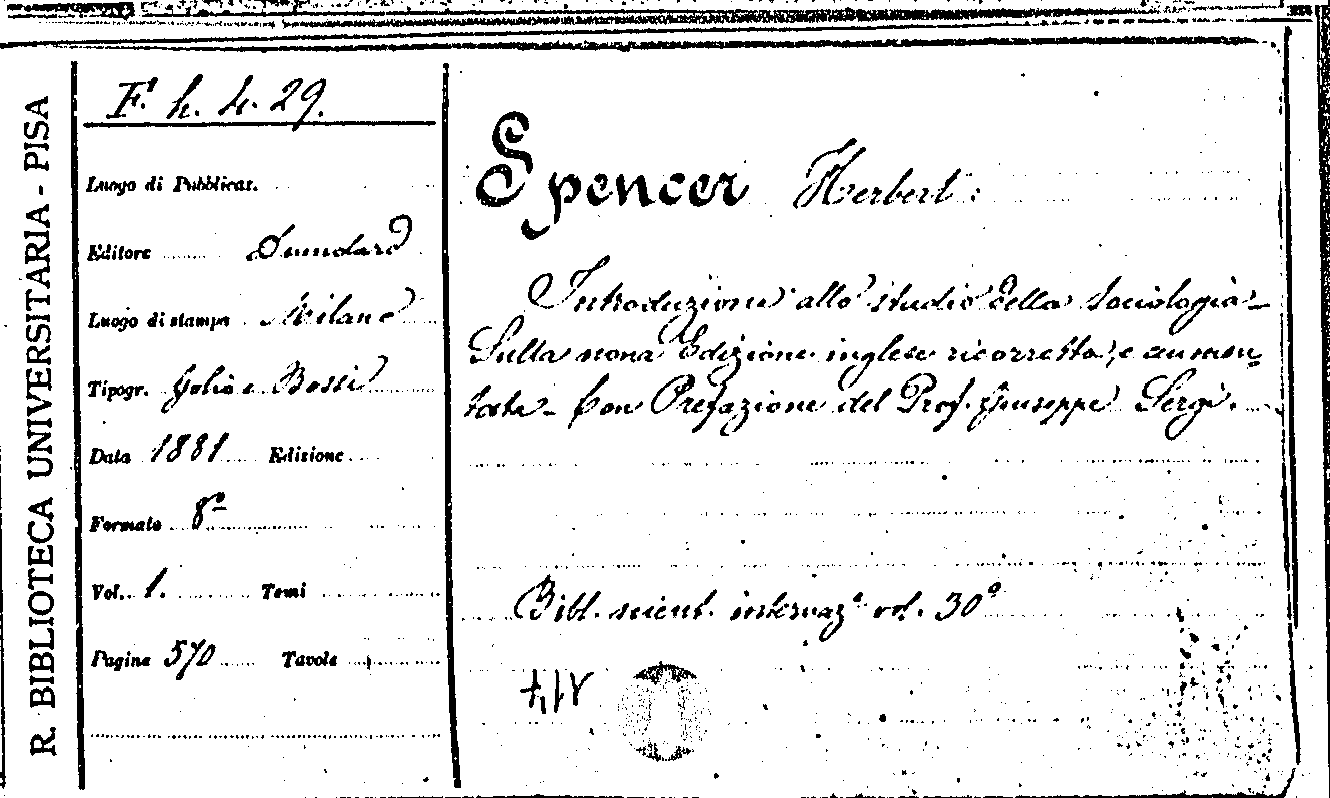 R. BIBLIOTECA UNIVERSITARIA - PISA
F. h. 4. 29.
Luogo di Pubblicaz.
Editore Dumolard
Luogo di stampa Milano
Tipogr. Golio e Bossi
Data 1881 Edizione
Formato 8º
Vol. 1. Tomi
Pagine 570 Tavole
Spencer Herbert:
Introduzione allo studio della sociologia -
Sulla nona Edizione inglese ricorretta, e aumen-
tata - Con Prefazione del Prof. Giuseppe Sergi.
Bibl. scient. internaz.e vol. 30º